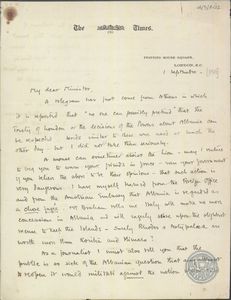 The Times.
PRINTING HOUSE SQUARE,
LONDON, E.C.
1 September
My dear Minister,
A telegram has just come from Athens in which
it is reported that "no one can possibly pretend that the
Treaty of London or the decisions of the Powers about Albania can
be respected words similar to these were used at lunch the
other day – but I did not take them seriously.
A mouse can sometimes advise the lion – may I venture
to beg you to warn your friends in Greece – even your government
if you believe the above to be their opinions – that such action is
very dangerous. I have myself learned from the Foreign Office
and from the Austrian Embassy that Albania is regarded as
a chose jugée – that Britain and Italy will make no more
concession in Albania and will eagerly seize upon the slightest
excuse to take the Islands – surely Rhodes & Astypalaea are
worth more than Koritza and Himara?
As a journalist I must also tell you that the
public is so sick of the Albanian question that any attempt
to reopen it would militate against the nation